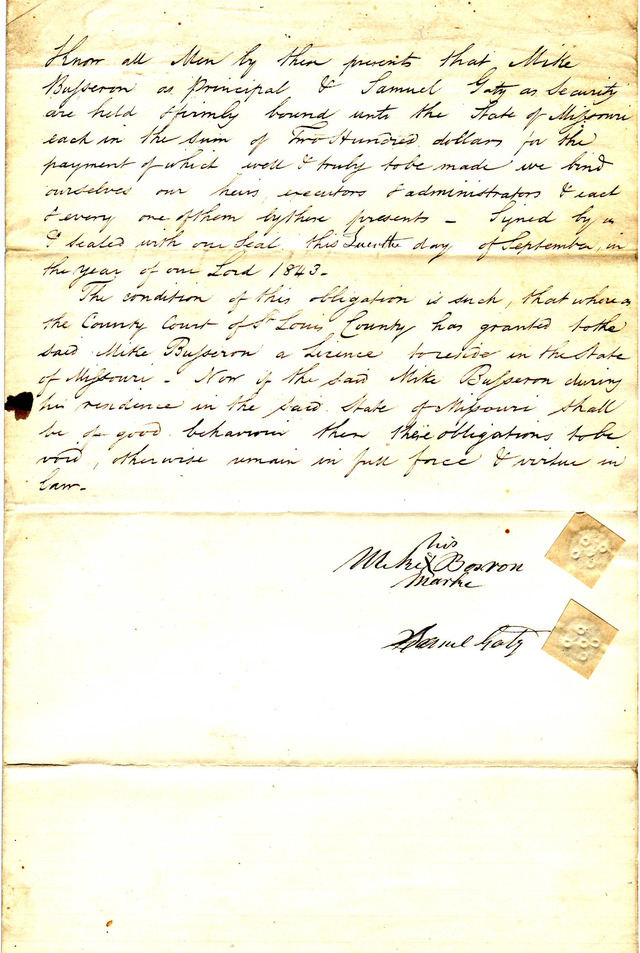 Know all Men by these presents that Mike
Busseron as Principal & Samuel Gaty as Security
are held & firmly bound unto the State of Missouri
each in the sum of Two Hundred dollars for the
payment of which well & truly to be made we bind
ourselves our heirs, executors & administrators & each
& every one of them by these presents – Signed by us
& sealed with our Seal this day of September, in
the year of our Lord 1843–
The condition of this obligation is such, that whereas
the County Court of St Louis County has granted to the
said Mike Busseron a Licence to reside in the State
of Missouri – Now if the said Mike Busseron during
his residence in the said State of Missouri shall
be of good behaviour then these obligations to be
void, otherwise remain in full force & virtue in
Law–
his
Mike X Bosron
marke
Samuel Gaty